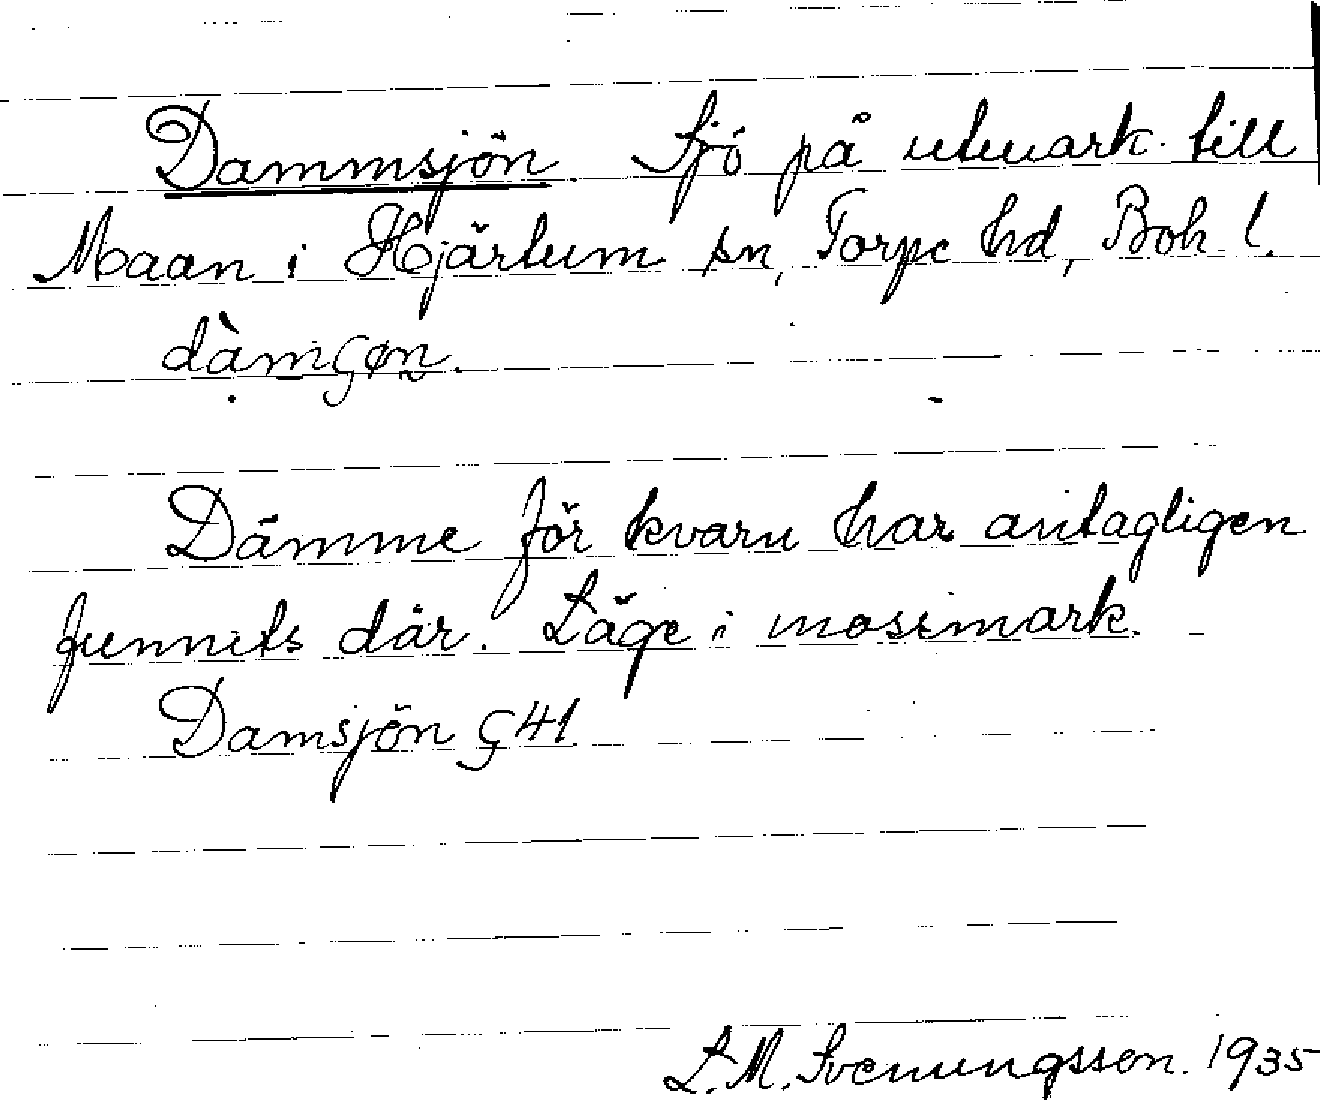 Dammsjön. Sjö på utmark till
Maan i Hjärtum sn, Torpe hd, Boh. l.
dàmςøn.
Dämme för kvarn har antagligen
funnits där. Läge i mossmark.
Damsjön G 41
L. M. Svenungsson. 1935